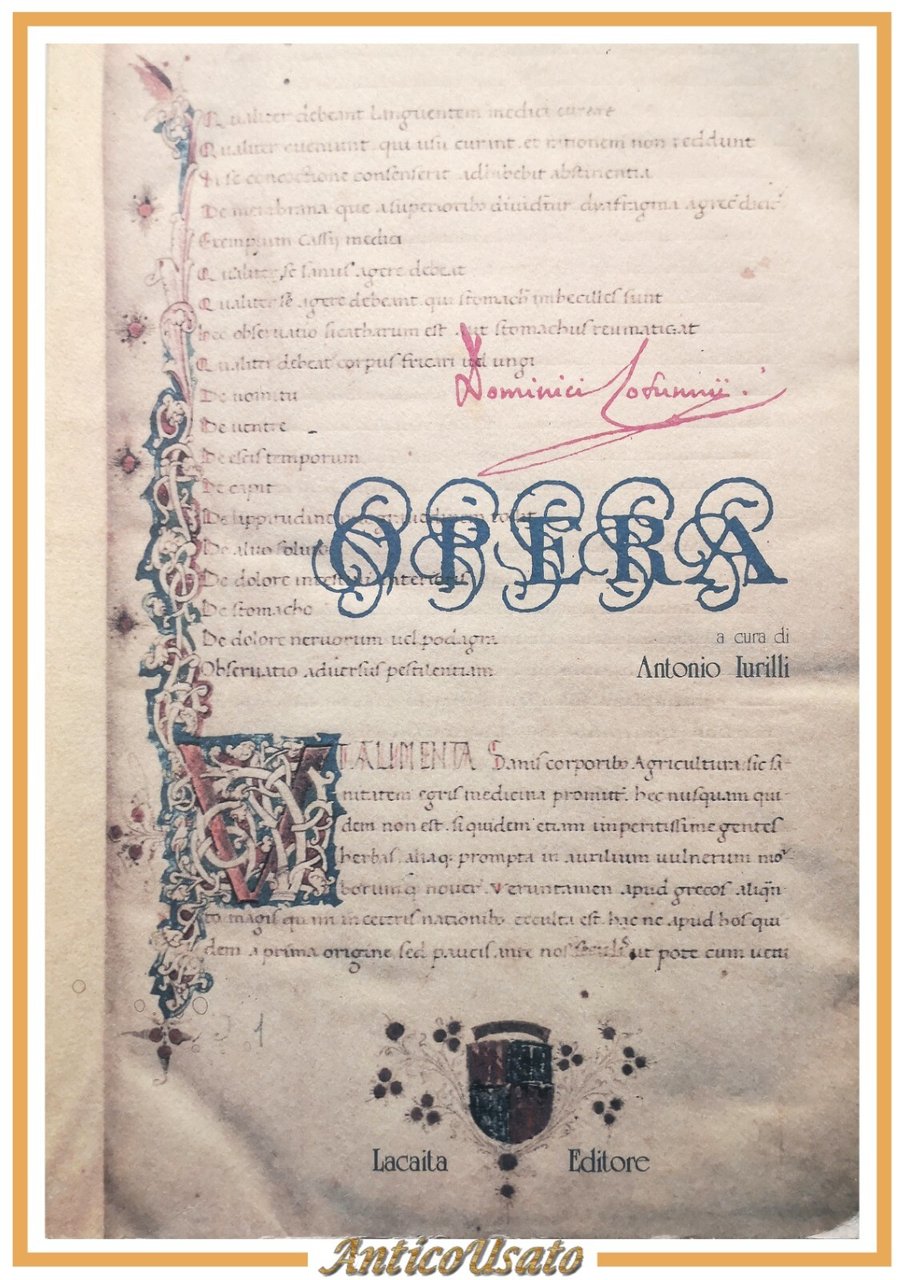 Qualiter debeant languentem medici curare
Qualiter eveniunt qui usu curant et rationem non reddunt
Si se concoctione consenserit adhibebit abstinentia
De membrana que a superiorib' dividitur
Exemplum Cassij medici
Qualiter se sanus agere debeat
Qualiter se agere debeant qui stomach' imbecilles sunt
hec observatio sicatharum est aut stomachus reumatizat
Qualiter debeat corpus fricari vel ungi
De vomitu
Dominici Cotunnii
De ventre
De escis temporum
De capit
De lippitudine
OPERA
De alvo soluto
De dolore
De stomacho
De dolore nervorum vel podagra
a cura di
Observatio adversus pestilentiam
Antonio Iurilli
VT ALIMENTA Sanis corporibo Agricultura: sic sa-
nitatem egris medicina promitt. hec nusquam qui-
dem non est. siquidem etiam imperitissime gentes
herbas. aliaq; prompta in auxilium vulnerum mor-
borumq nover. Veruntamen apud grecos aliqn-
to magis quam in ceteris nationibo exculta est. hac ne apud hos qui-
dem a prima origine sed paucis ante nos seculis ut pote cum vetu
1
Lacaita Editore
AnticoUsato